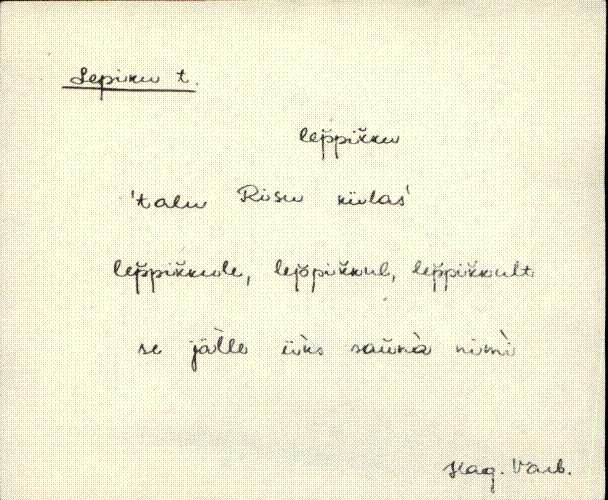 Lepiku t.
lep̆pik̆ku
'talu Risu külas'
lep̆pik̆kule, lep̆pik̆kul, lep̆pik̆kult
se jä̀lle ük̀s saŭnà nimì
Hag. Varb.